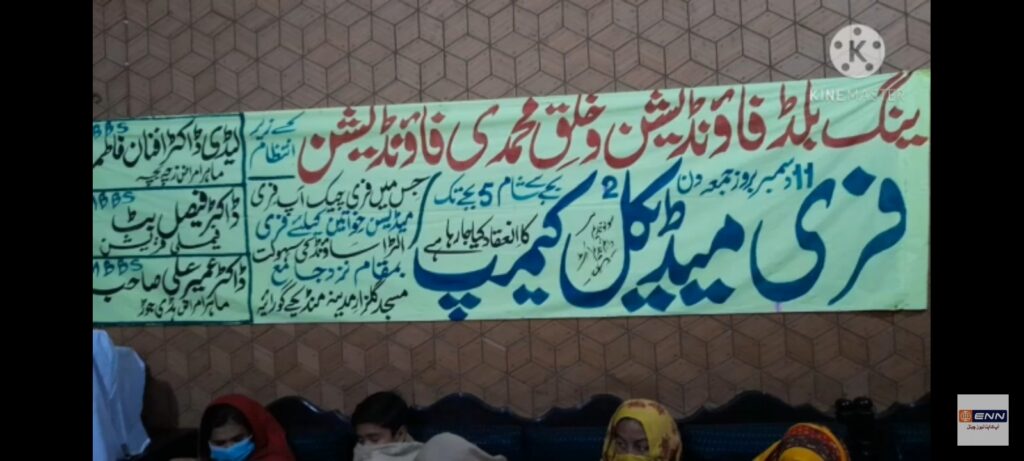 ینگ بلڈ فاؤنڈیشن و خلق محمدی فاؤنڈیشن
کے زیر
انتظام
11 دسمبر بروز جمعہ دن 2 بجے تا شام 5 بجے تک
فری میڈیکل کیمپ
کا انعقاد کیا جا رہا ہے
جس میں فری چیک اپ، فری
میڈیسن خواتین کیلئے فری
الٹرا ساؤنڈ کی سہولت
بمقام نزد جامع
مسجد گلزار مدینہ منڈیکے گورائیہ
MBBS
لیڈی ڈاکٹر افنان فاطمہ
ماہر امراض زچہ بچہ
MBBS
ڈاکٹر فیصل بٹ
فیملی فزیشن
MBBS
ڈاکٹر عمیر علی صاحب
ماہر امراض ہڈی جوڑ
K
KINEMASTER
ENN